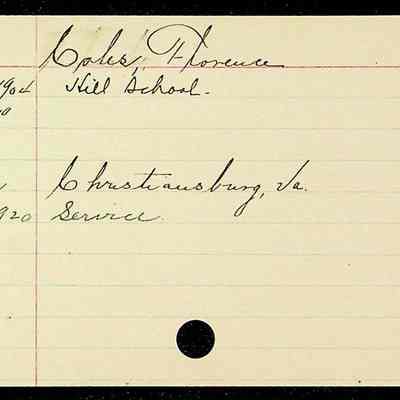 Coles, Florence
1904 Hill School.
Christiansburg, Va.
920 Service